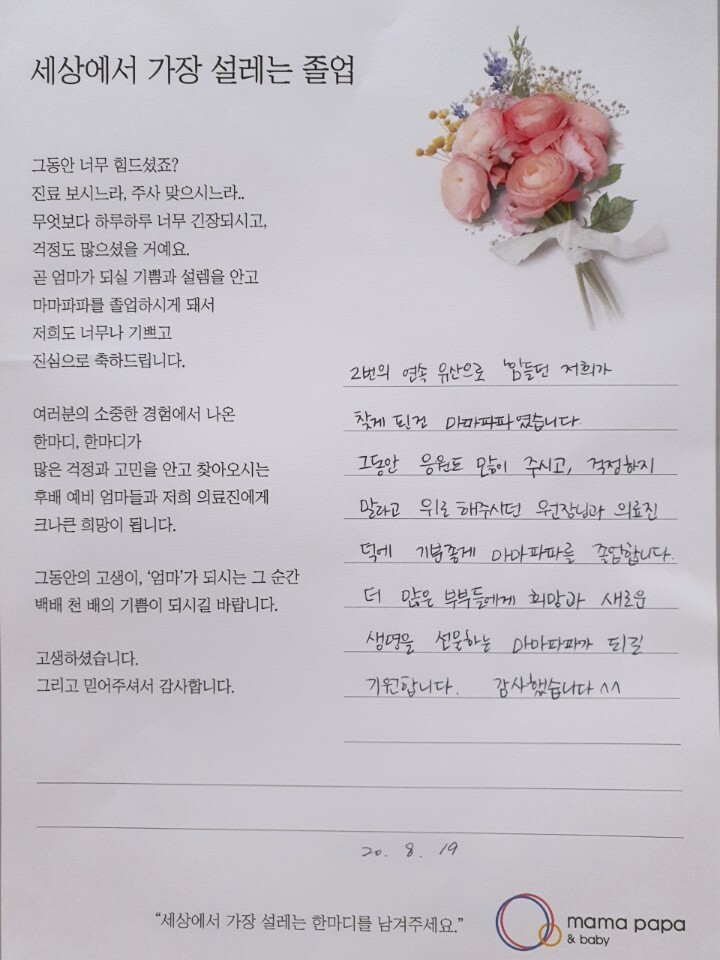 세상에서 가장 설레는 졸업
그동안 너무 힘드셨죠?
진료 보시느라, 주사 맞으시느라..
무엇보다 하루하루 너무 긴장되시고,
걱정도 많으셨을 거예요.
곧 엄마가 되실 기쁨과 설렘을 안고
마마파파를 졸업하시게 돼서
저희도 너무나 기쁘고
진심으로 축하드립니다.
여러분의 소중한 경험에서 나온
한마디, 한마디가
많은 걱정과 고민을 안고 찾아오시는
후배 예비 엄마들과 저희 의료진에게
크나큰 희망이 됩니다.
그동안의 고생이, ‘엄마’가 되시는 그 순간
백배 천 배의 기쁨이 되시길 바랍니다.
고생하셨습니다.
그리고 믿어주셔서 감사합니다.
2번의 연속 유산으로 힘들던 저희가
찾게 된건 마마파파였습니다.
그동안 응원도 많이 주시고, 걱정하지
말라고 위로 해주시던 원장님과 의료진
덕에 기분좋게 마마파파를 졸업합니다.
더 많은 부부들에게 희망과 새로운
생명을 선물하는 마마파파가 되길
기원합니다. 감사했습니다 ^^
20. 8. 19
“세상에서 가장 설레는 한마디를 남겨주세요.”
mama papa
& baby